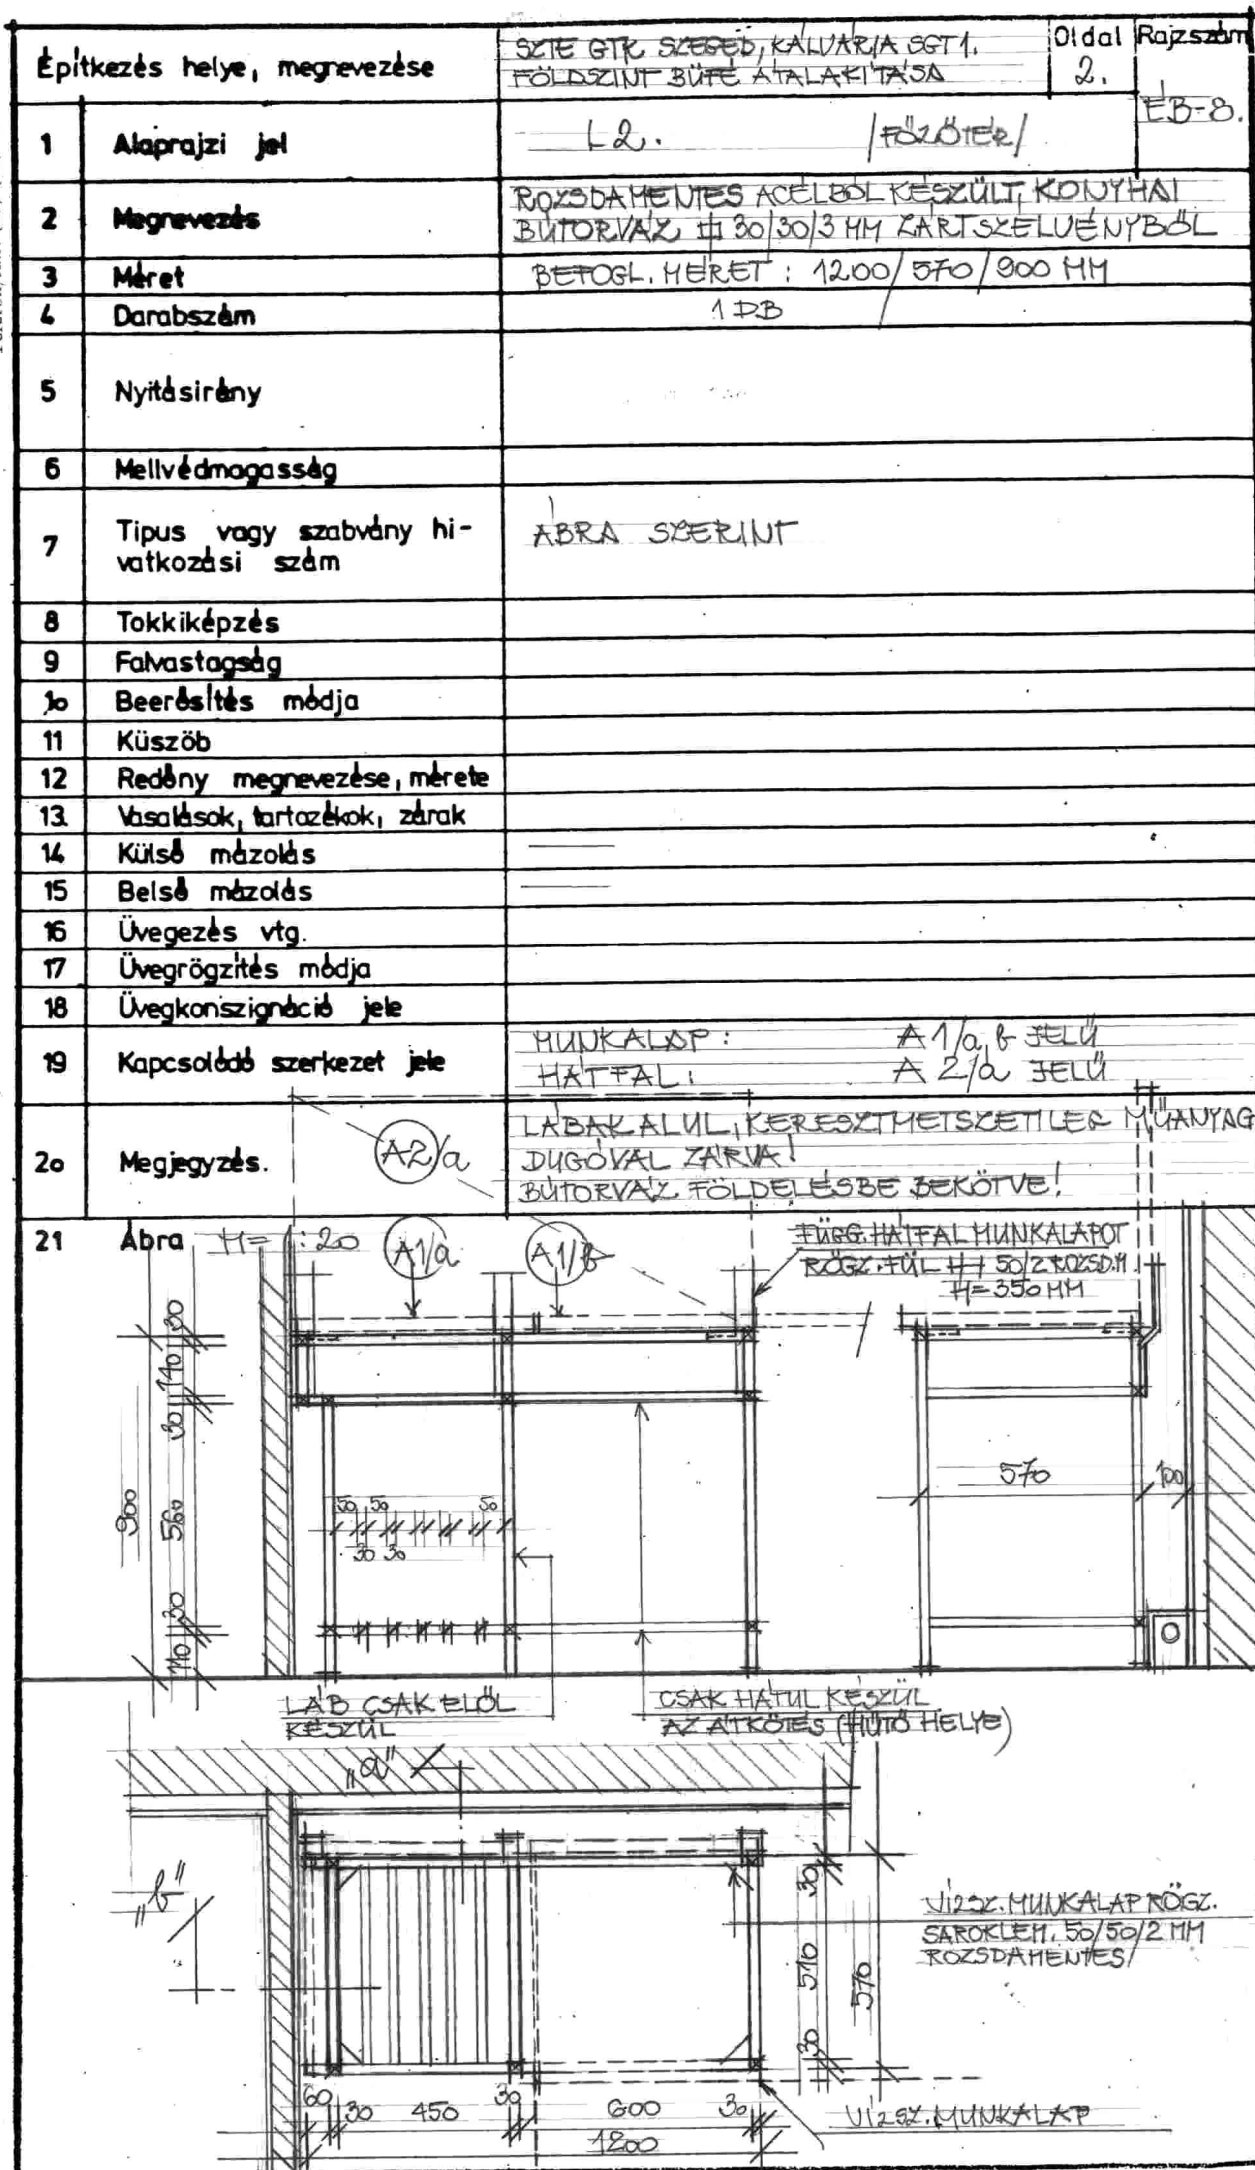 Építkezés helye, megnevezése
SZTE GTK SZEGED, KÁLVÁRIA SGT 1.
FÖLDSZINT BÜFÉ ÁTALAKÍTÁSA
Oldal
2.
Rajzszám
ÉB-8.
1 Alaprajzi jel L2. /FŐZŐTÉR/
2 Megnevezés ROZSDAMENTES ACÉLBÓL KÉSZÜLT, KONYHAI
BÚTORVÁZ 30/30/3 MM ZÁRTSZELVÉNYBŐL
3 Méret BEFOGL. MÉRET : 1200/570/900 MM
4 Darabszám 1 DB
5 Nyitásirány
6 Mellvédmagasság
7 Tipus vagy szabvány hi-
vatkozási szám
ÁBRA SZERINT
8 Tokkiképzés
9 Falvastagság
10 Beerősítés módja
11 Küszöb
12 Redőny megnevezése, mérete
13. Vasalások, tartozékok, zárak
14 Külső mázolás
15 Belső mázolás
16 Üvegezés vtg.
17 Üvegrögzítés módja
18 Üvegkonszignáció jele
19 Kapcsolódó szerkezet jele
MUNKALAP: A 1/a, b JELŰ
HÁTFAL: A 2/a JELŰ
20 Megjegyzés.
LÁBAK ALUL, KERESZTMETSZETILEG MŰANYAG
DUGÓVAL ZÁRVA!
BÚTORVÁZ FÖLDELÉSBE BEKÖTVE!
A2/a
21 Ábra M= 1:20
A1/a A1/b
FÜGG. HÁTFAL MUNKALAPOT
RÖGZ. FÜL 50/2 ROZSD.M.
H=350 MM
30
140
30
560
900
30
110
50 50 50
30 30
570 100
LÁB CSAK ELÖL
KÉSZÜL
CSAK HÁTUL KÉSZÜL
AZ ÁTKÖTÉS (HŰTŐ HELYE)
"a"
"b"
30
510
570
30
VÍZSZ. MUNKALAP RÖGZ.
SAROKLEM. 50/50/2 MM
ROZSDAMENTES
60 30 450 30 600 30
1200
VÍZSZ. MUNKALAP